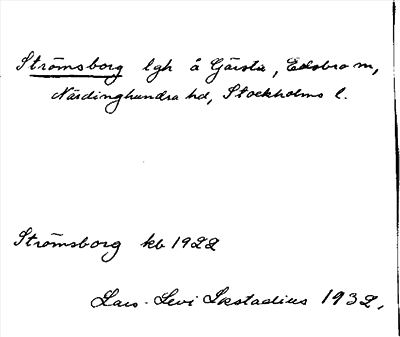 Strömsborg lgh å Gärsta, Edsbro sn,
Närdinghundra hd, Stockholms l.
Strömsborg kb 1922
Lars-Levi Læstadius 1932.